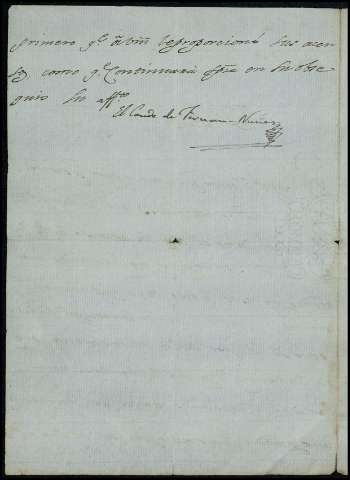 primero q.e a Vm le proporcioná sus acen
sos como q.e Continuará spre en su obse
quio su aff.mo
El Conde de Fernan-Nuñez